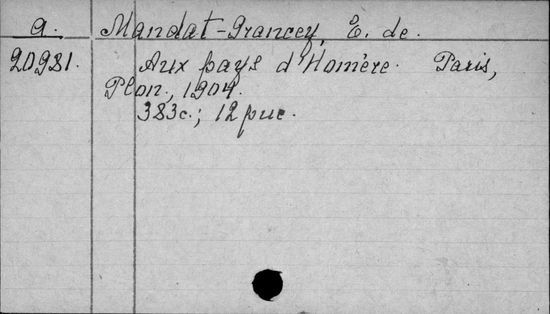 a. Mandat-Grancey, E. de.
20981. Aux pays d'Homère. Paris,
Plon, 1904.
383c.; 12 рис.